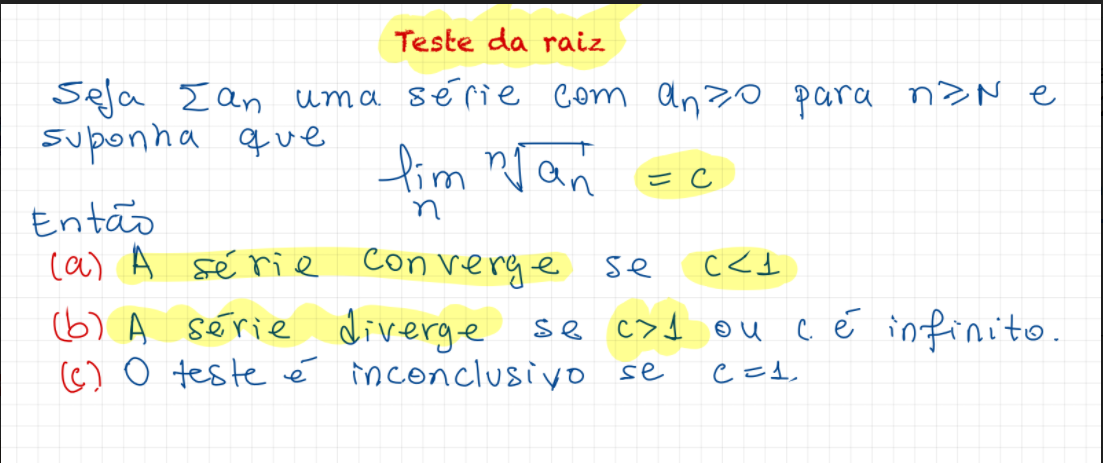 Teste da raiz
Seja Σan uma série com an⩾0 para n⩾N e
suponha que
lim ⁿ√an = c
n
Então
(a) A série converge se c<1
(b) A série diverge se c>1 ou c é infinito.
(c) O teste é inconclusivo se c=1.